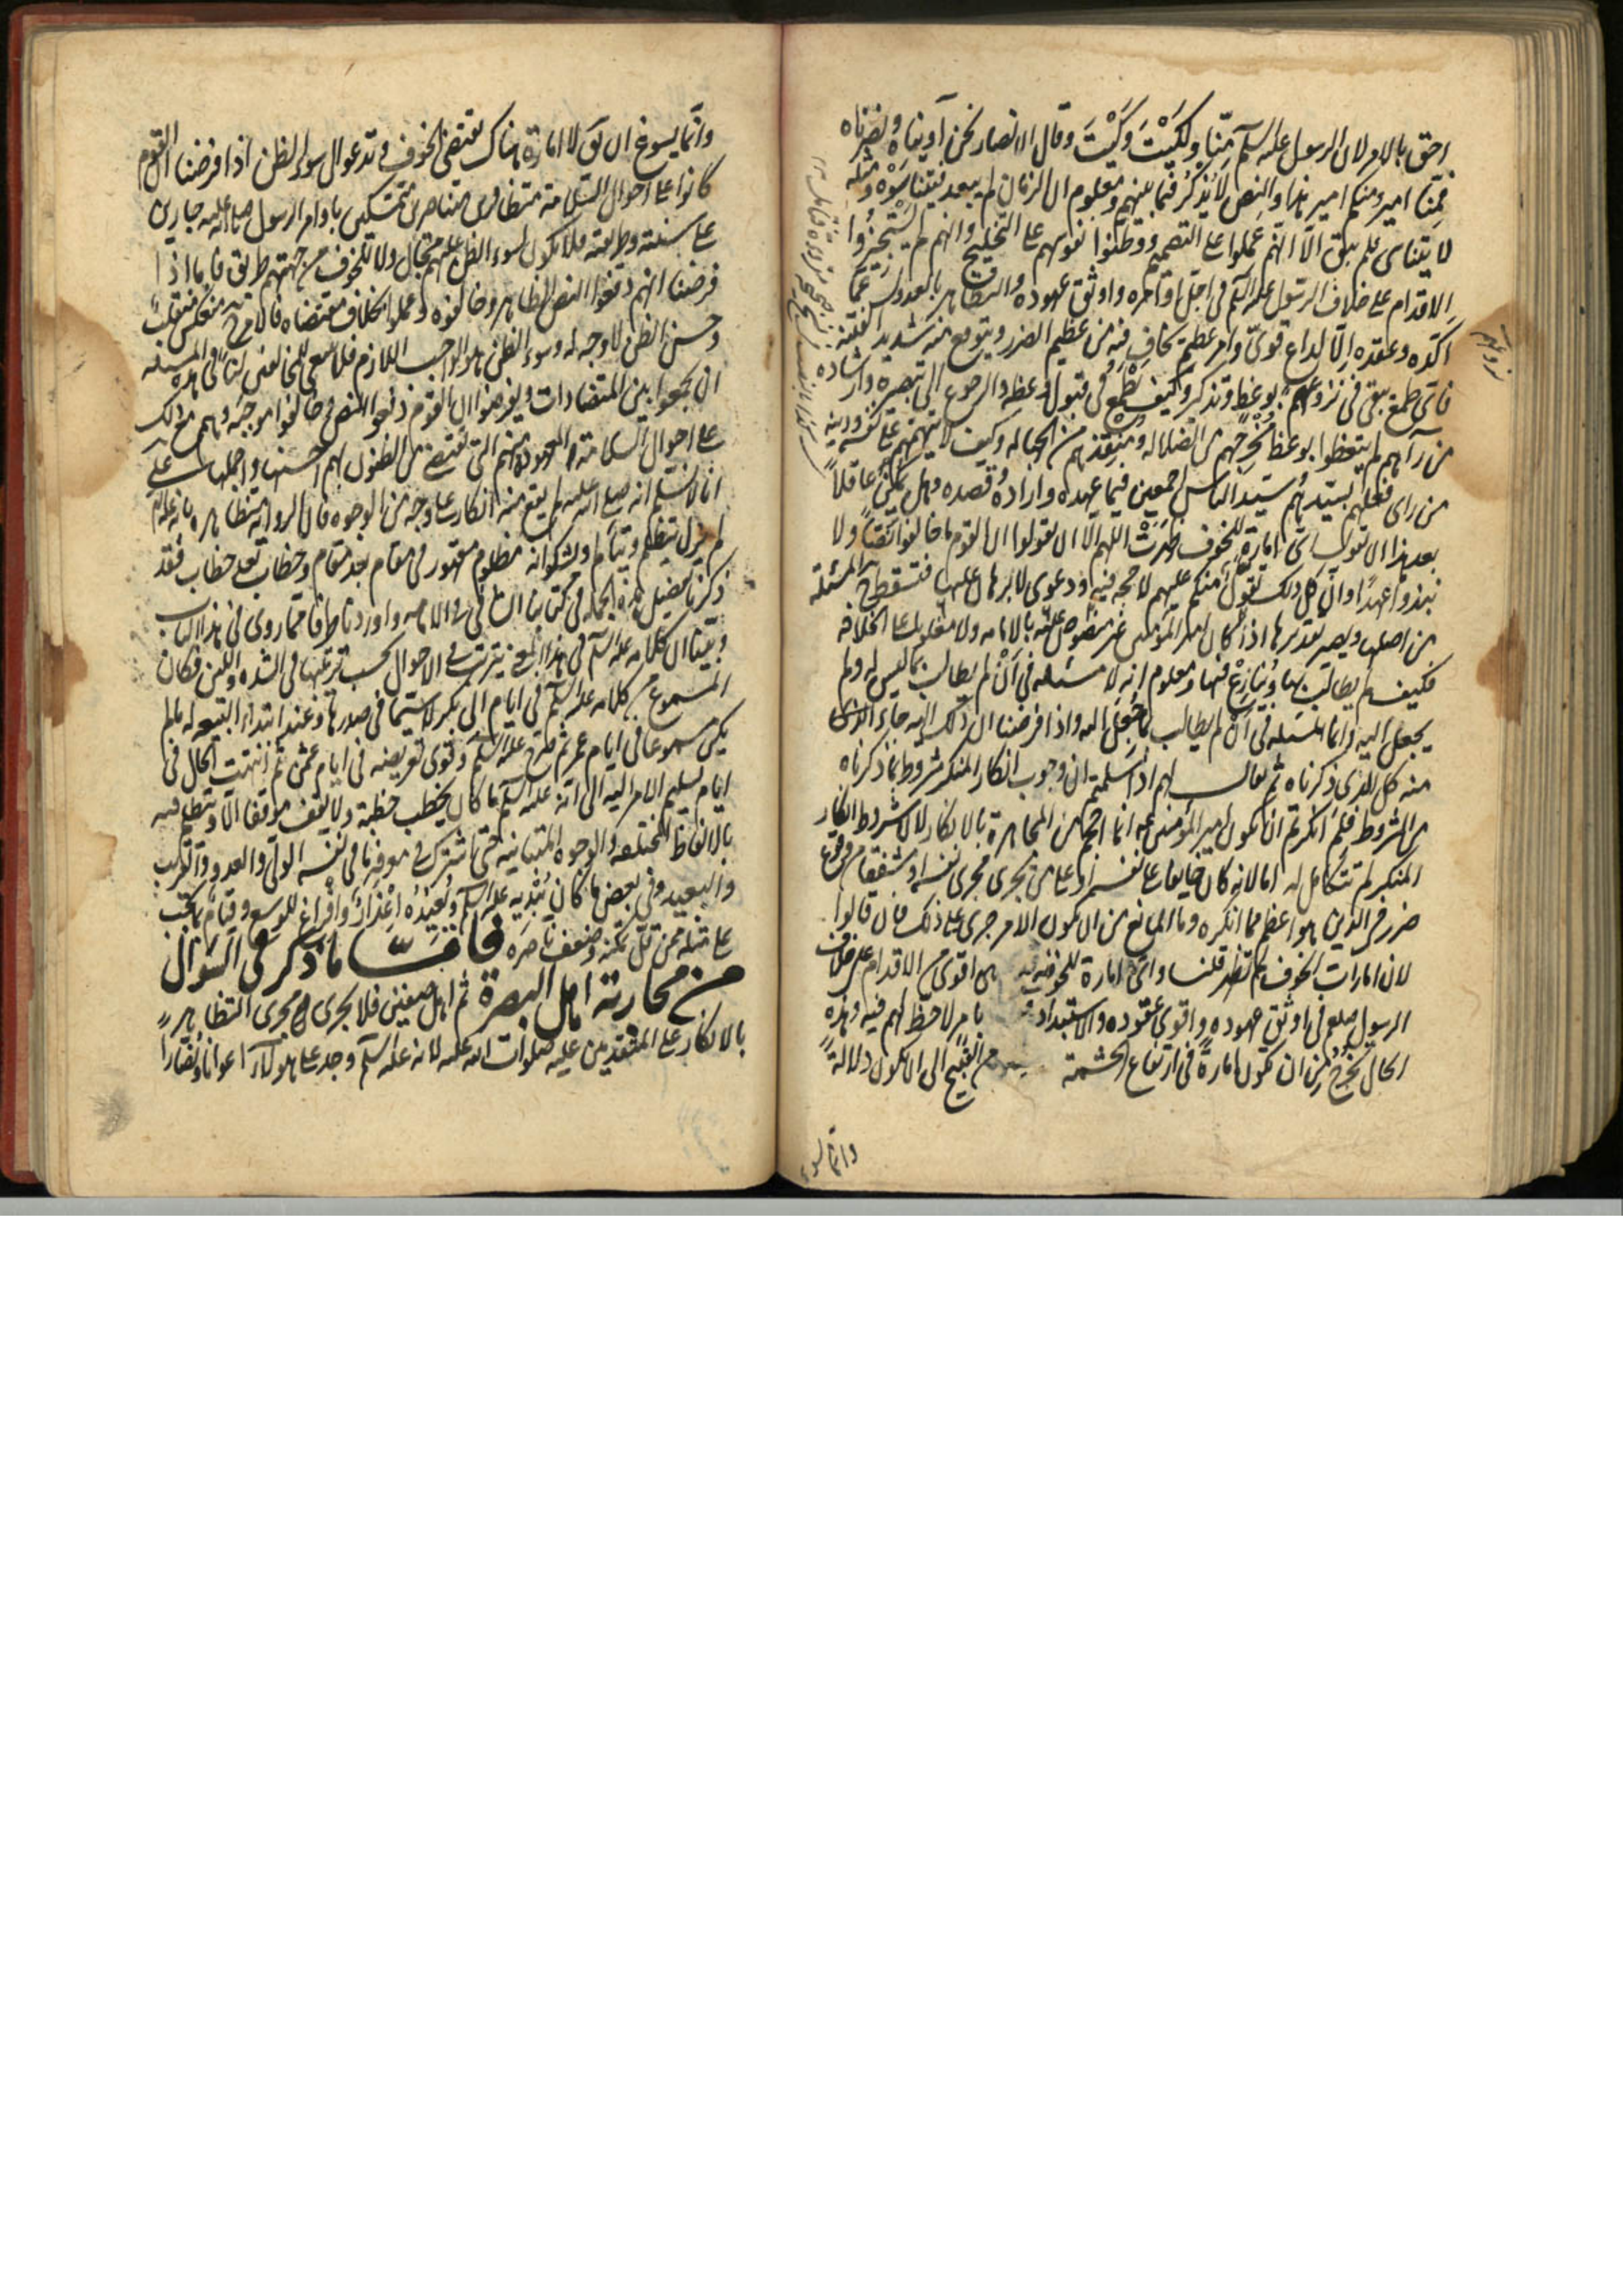 احق بالامر لان الرسول عليه السلم منّا ولكَيْتَ وكَيْتَ وقال الانصار نحن آويناه ونصرناه
فمِنّا امير ومنكم امير هذا والنص لا يُذْكَرُ فيما بينهم ومعلوم ان الزمان لم يبعد فيتناسَوْه ومثله
لا يتناسى فلم يبق الّا انّهم عملوا على التصميم ووطّنوا نفوسهم على التجليح وانهم لم يستجيزوا
الاقدام على خلاف الرسول عليه السلم في اجلّ اوامره واوثق عهوده والتظاهر بالعدول عمّا
اكّده وعقده الّا لداع قويّ وامر عظيم يخاف فيه من عظيم الضرر ويتوقع منه شديد الفتنة
فاىّ طمع يبقى فى نزوعهم بوعظ وتذكير وكيف يطمع فى قبول وعظه والرجوع الى تبصره وارشاده
من رآهم لم يتعظوا بوعظ مُخْرجهم من الضلالة ومنقذهم من الجهالة وكيف لا يتّهمهم على نفسه ودينه
من رأى فعلهم بسيّدهم وسيّد الناس اجمعين فيما عهده واراده وقصده وهل يتمكّن عاقل
بعد هذا ان يقول اىّ امارة للخوف ظهرَتْ اللهم الّا ان يقولوا ان القوم ما خالفوا نصّاً ولا
نبذوا عهداً وان كل ذلك تقوّل منكم عليهم لا حجه فيه ودعوى لا برهان عليها فتسقط المسئلة
من اصلها ويصير تقديرها اذا كان امير المؤمنين غير منصوص عليه بالامامه ولا مغلوب على الخلافه
فكيف لم يطالب بها ويُنازِعْ فيها ومعلوم انه لا مسئله فى اَنْ لم يطالب بما ليس له ولم
يجعل اليه وانما المسئله فى اَنْ لم يطالب بما جُعِلَ اليه واذا فرضنا ان ذلك اليه جاء الذى
منه كل الذى ذكرناه ثم يقال لهم اذا سلّمتم ان وجوب انكار المنكر مشروط بما ذكرناه
من الشروط فلِمَ انكرتم ان يكون امير المؤمنين انما احجم عن المجاهرة بالانكار لان شروط انكار
المنكر لم تتكامل له اما لانه كان خايفا على نفسه او على من يجرى مجرى نفسه او مشفقا من وقوع
ضرر فى الدين هو اعظم مما انكره وما المانع من ان يكون الامر جرى على ذلك فان قالوا
لان امارات الخوف لم تظهر قلنا واىّ امارة للخوف هى اقوى من الاقدام على خلاف
الرسول صلعم فى اوثق عهوده واقوى عقوده والاستبداد بامر لا حظّ لهم فيه وهذه
الحال تُخْرِجُ من ان تكون امارةً فى ارتفاع الحشمة من القبيح الى ان يكون دلالةً
نزوعهم
وانما يسوغ
وانّما يسوغ ان يقَ لا امارة هناك تقتضى الخوف وتدعو الى سوء الظن اذا فرضنا ان القوم
كانوا على احوال السلامة متظافرين متناصرين متمسّكين باوامر الرسول صلى الله عليه جارين
على سنته وطريقته فلا يكون لسوء الظن عليهم مجال ولا للخوف من جهتهم طريق فاما اذا
فرضنا انهم دفعوا النص الظاهر وخالفوه وعملوا بخلاف مقتضاه فالامر منعكس منقلب
وحسن الظن لا وجه له وسوء الظن هو الواجب اللازم فلا ينبغى للمخالفين لنا فى هذه المسئله
ان يجمعوا بين المتضادات ويفرضوا ان القوم دفعوا النص وخالفوا موجبه وهم مع ذلك
على احوال السلامة المعهودة منهم التى تقتضى من الظنون بهم احسنها واجملها على
انا لا نسلّم انه صلى الله عليه لم يقع منه انكار على وجه من الوجوه فان الرواية متظاهره بانه عليه السلم
لم يزل يتظلّم ويتألم ويشكو انه مظلوم مقهور فى مقام بعد مقام وخطاب بعد خطاب فقد
ذكرنا تفصيل هذه الجمله فى كتابنا الشافى فى الامامه واوردنا طرفا مما روى فى هذا الباب
وبيّنا ان كلامه عليه السلم فى هذا المعنى يترتب فى الاحوال بحسب ترتّبها فى الشده واللين فكان
المسموع من كلامه عليه السلم فى ايام ابى بكر لا سيّما فى صدرها وعند ابتداء البيعه له ما لم
يكن مسموعا فى ايام عمر ثم صرّح عليه السلم وقوى تعريضه فى ايام عثمن ثم انتهت الحال فى
ايام تسليم الامر اليه الى انه عليه السلم ما كان يخطب خطبة ولا يقف موقفا الّا ويتكلم فيه
بالالفاظ المختلفه والوجوه المتباينه حتى اشترك فى معرفة ما فى نفسه الولىّ والعدو والقريب
والبعيد وفى بعض ما كان يُبْديه عليه السلم ويُعيدُه اعْذار وافراغ للوسع وقيام بما يجب
على مثله ممن قلّ تمكّنه وضعف ناصره فامّا ما ذكر فى السؤال
من محاربة اهل البصرة ثم اهل صفين فلا يجرى مجرى التظاهر
بالانكار على المتقدمين عليه صلوات الله عليه لانه عليه السلم وجد على هولاء اعوانا وانصاراً